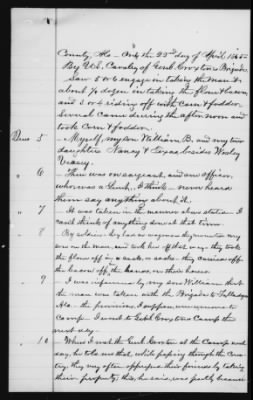 County, Ala - On the 23rd day of April 1865
By U.S. Cavalry of Genl. Croxtons Brigade.
saw 5 or 6 engage in taking the mare &
about ½ dozen in taking the flour & bacon
and 3 or 4 riding off with corn & fodder
Several came during the afternoon and
took corn & fodder.
5 - Myself, my son William B. and my two
daughters Nancy & besides Wesley
" 6 - There was one sargeant, and one officer,
who was a Lieut., I think - never heard
them say anything about it.
" 7 - It was taken in the manner above stated - I
can't think of anything about that time
" 8 - By soldiers
son on the mare, and took her off that way - they took
the flour off in a sack, or sacks - they carried off
the bacon off, the horses, on their horses.
" 9 - I was informed by my son William that
the mare was taken with the Brigade to Talladega
Ala - the provisions, I suppose, were removed to
Camp - I went to Genl. Croxtons Camp the
next day -
" 10 - When I met the Genl. Croxton at the Camp next
day, he told me that, while passing through the Coun-
try, they very often oppress their friends by taking
their property; this, he said, was partly because